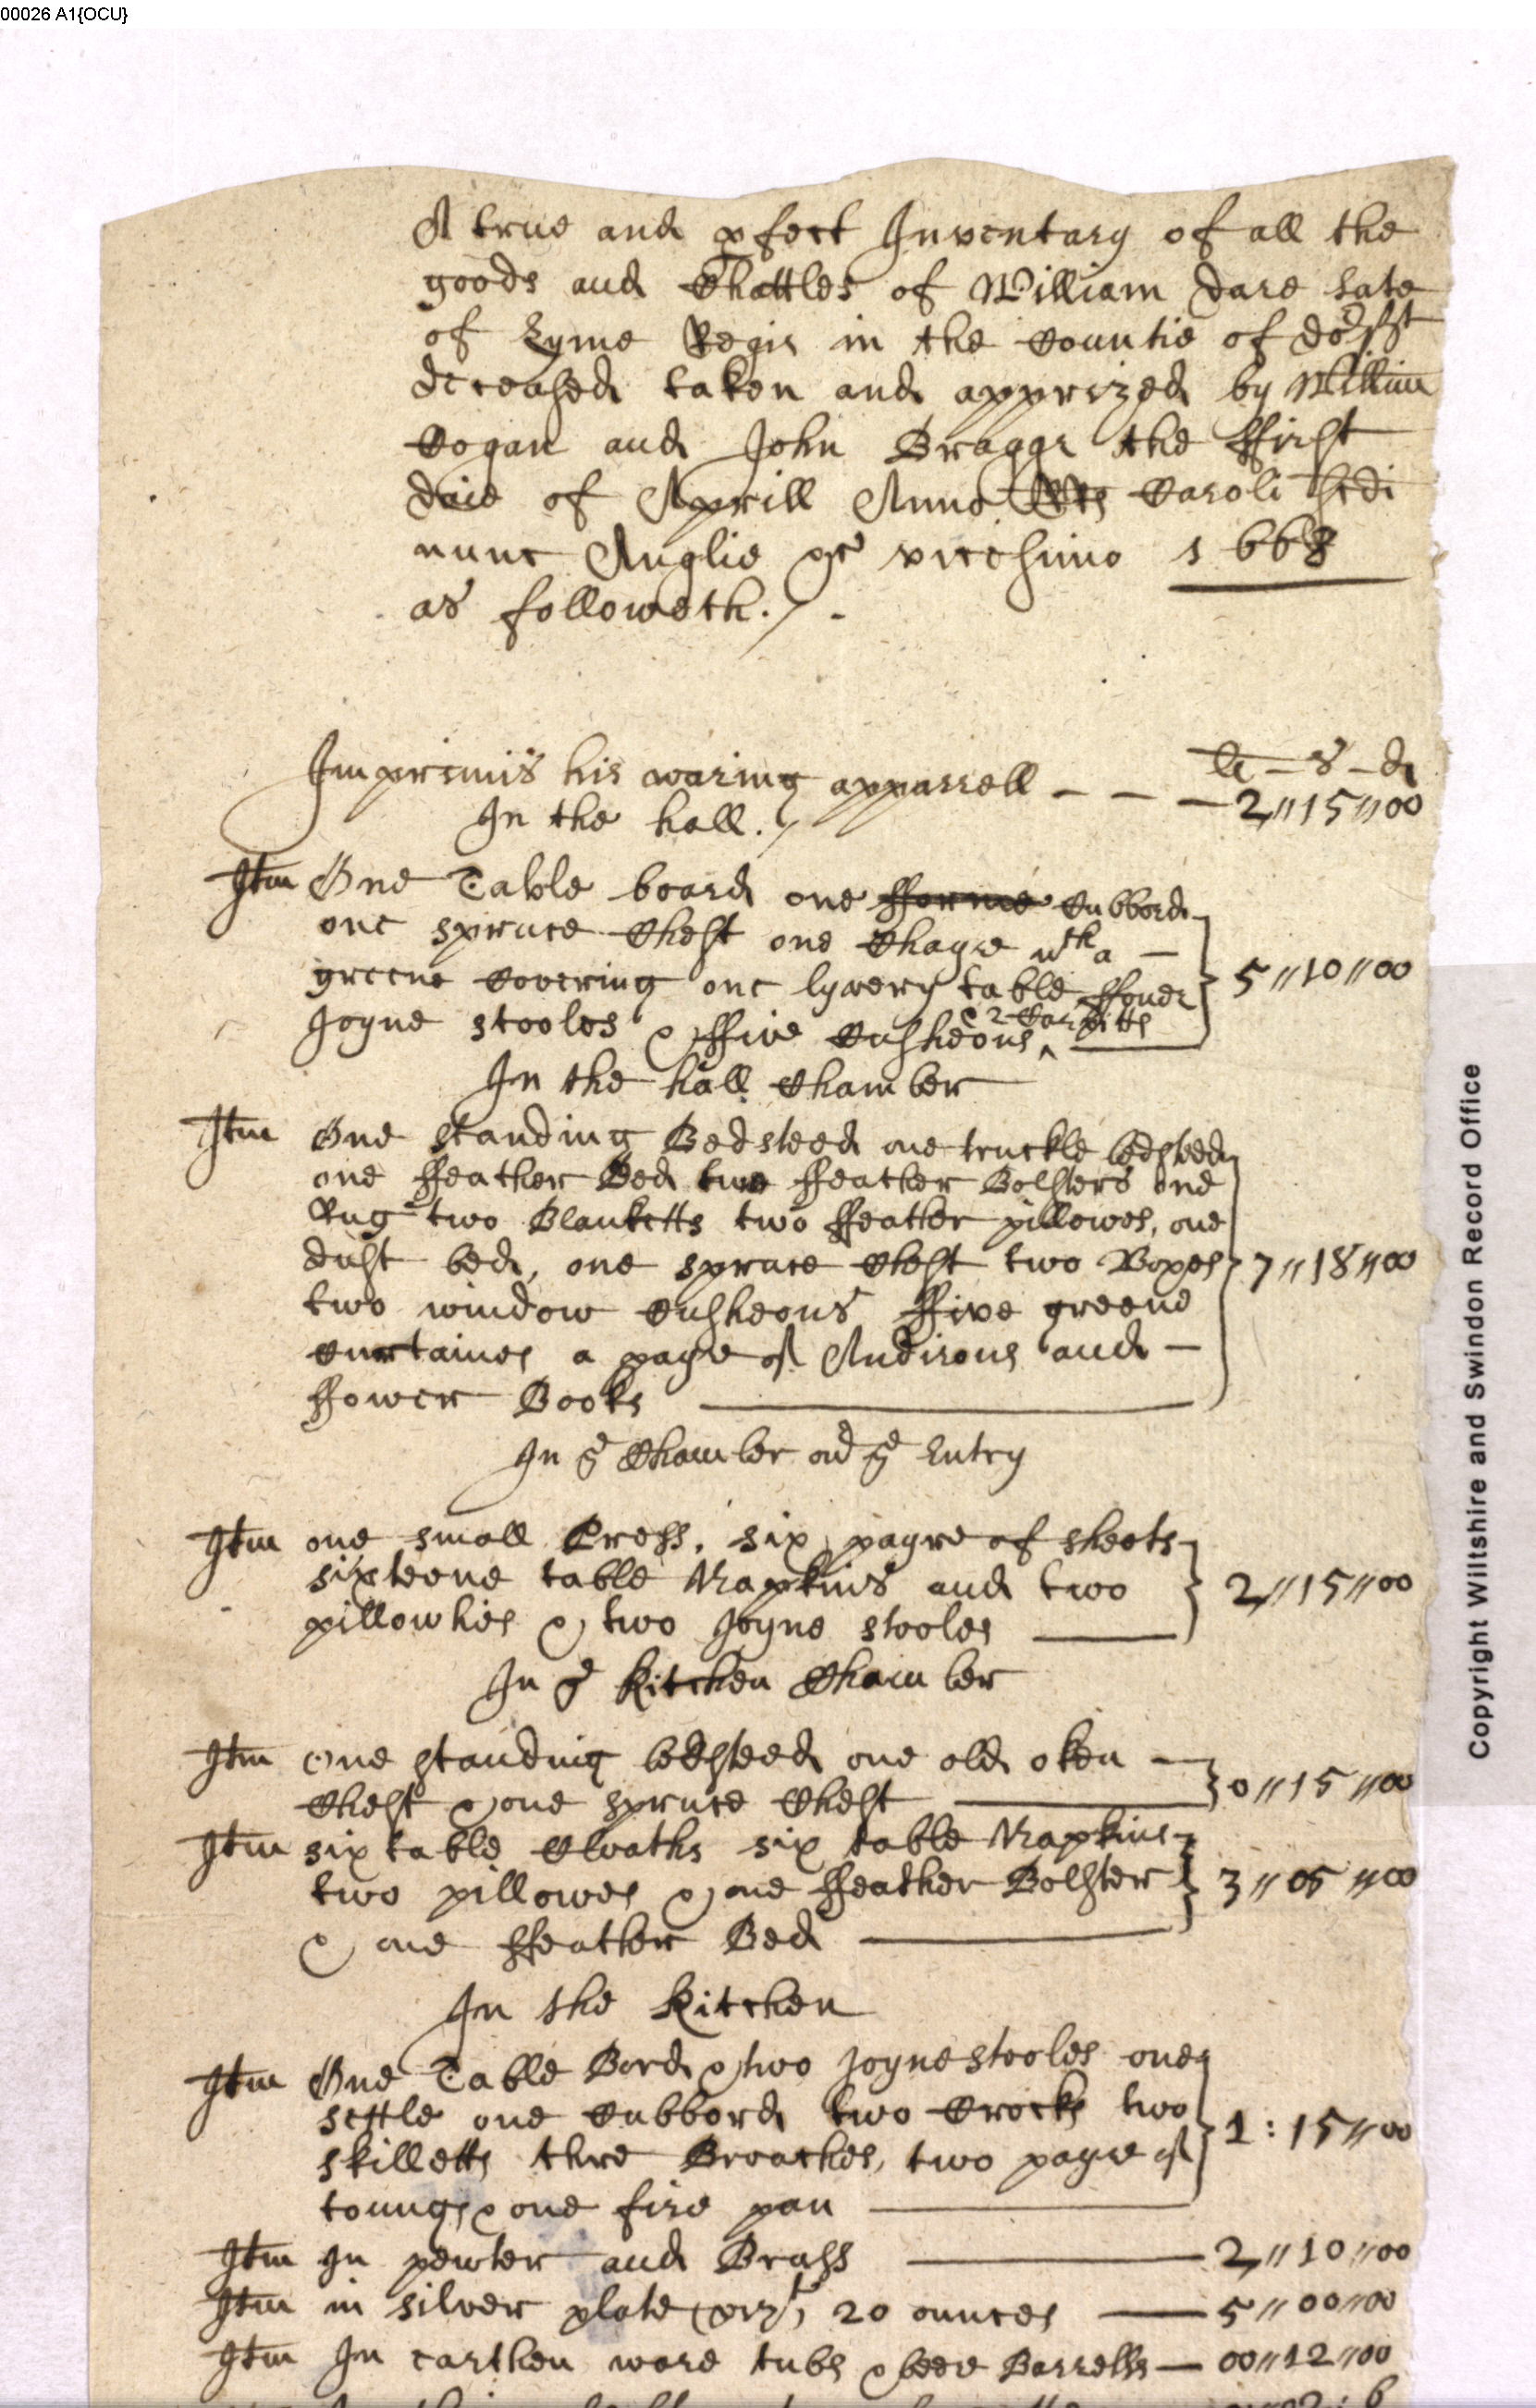 00026 A1{OCU}
A true and pfect Inventary of all the
goods and Chattles of William Dare late
of Lyme Regis in the Countie of Dorsst
deceased taken and apprized by William
Cogan and John Bragge the ffirst
daie of Aprill Anno Rs Caroli scdi
nunc Anglie &c vicesimo 1668
as followeth./.
li - s - d
Imprimis his waring apparrell - - - 2//15//00
In the hall./
Itm One Table board one fforme Cubbord
one spruce Chest one Chayre wth a -
greene Covering one lyvery table ffouer
Joyne stooles & ffive Cusheons ^ & 2 Carpitts 5//10//00
In the hall Chamber
Itm One standing Bedsteed one truckle bedsteed
one ffeather Bed two ffeather Bolsters one
Rug two Blanketts two ffeather pillowes, one
dust bed, one spruce Chest two Boxes 7//18//00
two window Cusheons ffive greene
Curtaines a payre of Andirons and -
ffower Books
In ye Chamber ov ye Entry
Itm one small Press, six payre of sheets
sixteene table Napkins and two 2//15//00
pillowties & two Joyne stooles
In ye Kitchen Chamber
Itm One standing bedsteed one old oken -
Chest & one spruce Chest 0//15//00
Itm six table Cloaths six table Napkins
two pillowes & one ffeather Bolster 3//05//00
& one ffeather Bed
In the Kitchen
Itm One Table Bord & two joyne stooles one
settle one Cubbord two Crocks two 1:15//00
skilletts thre Broaches, two payre of
toungs & one fire pan
Itm In pewter and Brass 2//10//00
Itm in silver plate (vizt) 20 ounces 5//00//00
Itm In earthen ware tubs & beere Barrells - 00//12//00
Copyright Wiltshire and Swindon Record Office